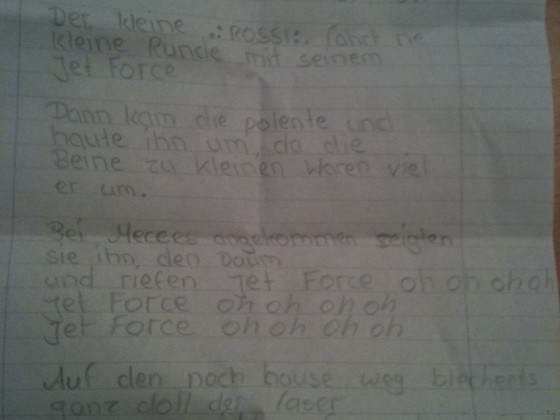 Der kleine .:ROSSI:. fährt ne
kleine Runde mit seinem
Jet Force
Dann kam die polente und
haute ihn um, da die
Beine zu kleinen waren viel
er um.
Bei Mecces angekommen zeigten
sie ihn den Daum
und riefen Jet Force oh oh oh oh
Jet Force oh oh oh oh
Jet Force oh oh oh oh
Auf den nach hause weg
ganz doll der laser